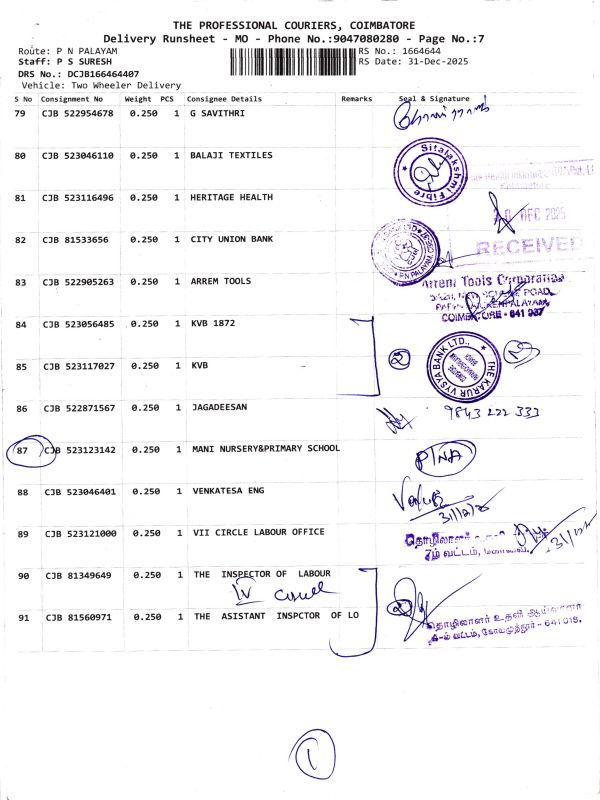 THE PROFESSIONAL COURIERS, COIMBATORE
Delivery Runsheet - MO - Phone No.:9047080280 - Page No.:7
Route: P N PALAYAM
RS No.: 1664644
Staff: P S SURESH
RS Date: 31-Dec-2025
DRS No.: DCJB166464407
Vehicle: Two Wheeler Delivery
S No Consignment No Weight PCS Consignee Details Remarks Seal & Signature
79 CJB 522954678 0.250 1 G SAVITHRI
80 CJB 523046110 0.250 1 BALAJI TEXTILES
Sitalakshmi Fibre
81 CJB 523116496 0.250 1 HERITAGE HEALTH
DEC 2025
RECEIVED
82 CJB 81533656 0.250 1 CITY UNION BANK
83 CJB 522905263 0.250 1 ARREM TOOLS
Arrem Tools Corporation
COIMBATORE - 641 037
84 CJB 523056485 0.250 1 KVB 1872
85 CJB 523117027 0.250 1 KVB
2
THE KARUR VYSYA BANK LTD.,
86 CJB 522871567 0.250 1 JAGADEESAN
9843 222 333
87 CJB 523123142 0.250 1 MANI NURSERY&PRIMARY SCHOOL
P/NA
88 CJB 523046401 0.250 1 VENKATESA ENG
31/12/25
89 CJB 523121000 0.250 1 VII CIRCLE LABOUR OFFICE
தொழிலாளர் உதவி
7ம் வட்டம், கோவை.
90 CJB 81349649 0.250 1 THE INSPECTOR OF LABOUR
IV Circle
91 CJB 81560971 0.250 1 THE ASISTANT INSPCTOR OF LO
2
தொழிலாளர் உதவி ஆய்வாளர்
4-ம் வட்டம், கோயமுத்தூர் - 641 018.
1